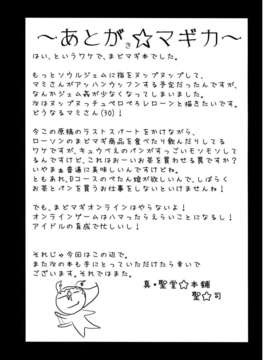 ～あとがき☆マギカ～
はい、というワケで、まどマギ本でした。
もっとソウルジェムに指をヌップヌップして、
マミさんがアッハンウッフンする予定だったんですが、
なんかジェム姦が少なくなってしまいました。
次はヌップヌッチュペロペラレローンと描きたいです。
どうなるマミさん(30)！
今この原稿のラストスパートをかけながら、
ローソンのまどマギ商品を食べたり飲んだりしてる
ワケですが、キュウべえのパンがすっごいモソモソして
るんですけど、これはおーいお茶を買わせる罠ですか？
いやまぁ普通に美味しいんですけどね。
ともあれ、Dコースのべたん娘が欲しいんで、しばらく
お茶とパンを買うお仕事をしないといけませんね！
でも、まどマギオンラインはやらないよ！
オンラインゲームはハマったらえらいことになるし！
アイドルの育成で忙しいし！
それじゃ今回はこの辺で。
また次の本も手にとっていただけたら幸いで
ございます。それではまた。
真・聖堂☆本舗
聖☆司